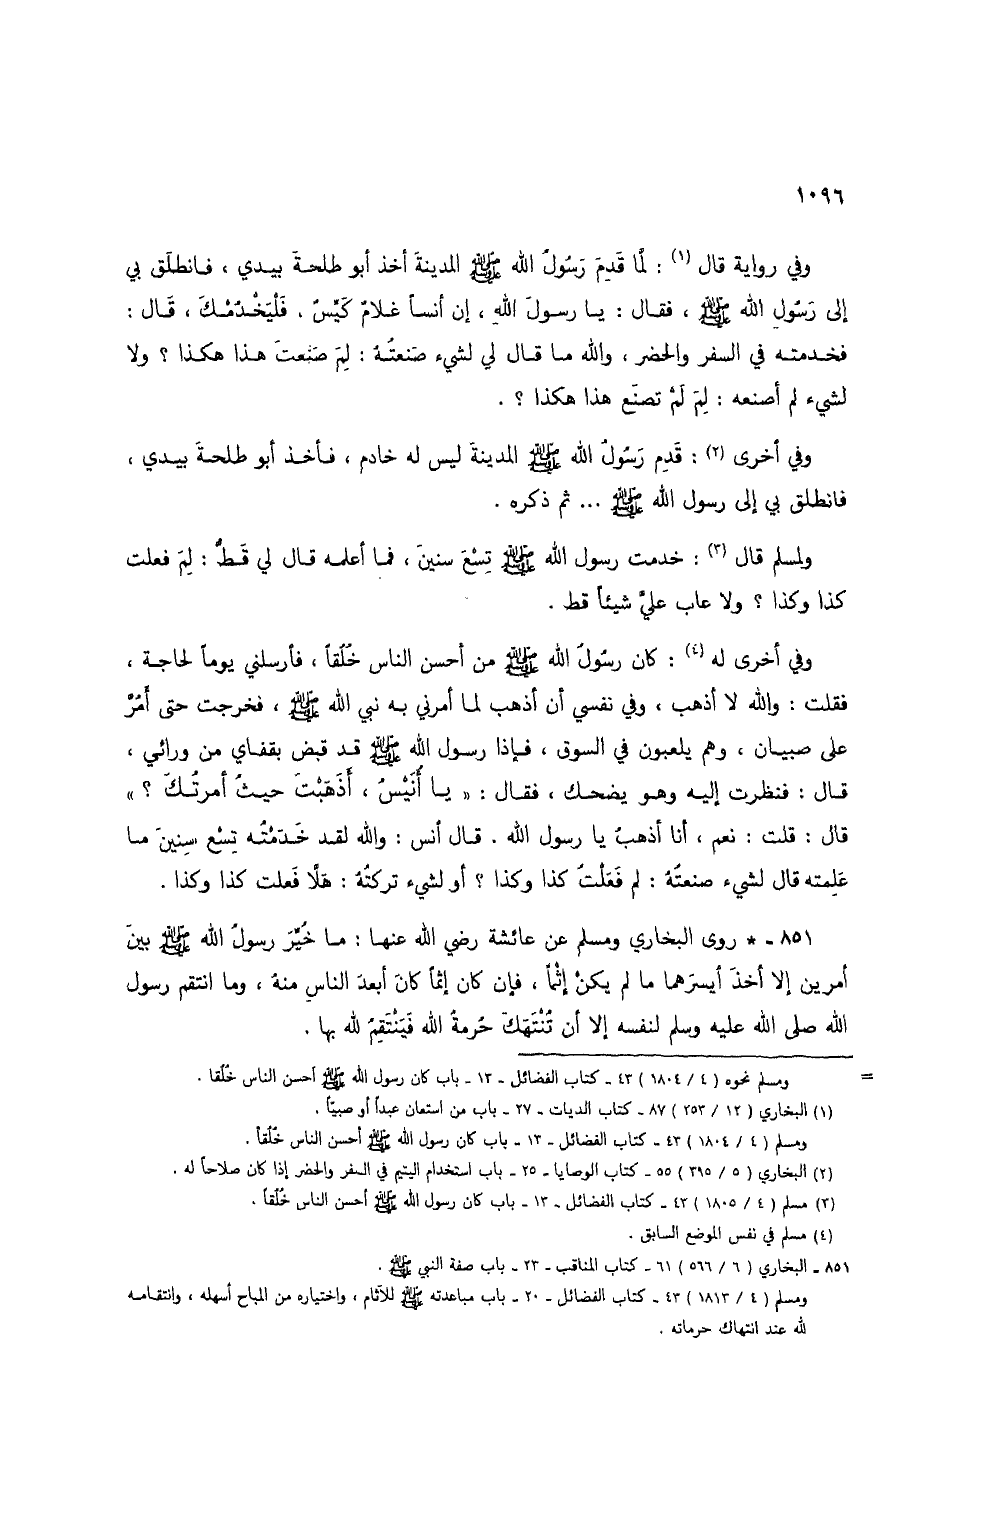 ١٠٩٦
وفي رواية قال (١) : لَمَّا قَدِمَ رَسُولُ الله ﷺ المدينةَ أخذ أبو طلحةَ بيدي ، فانطلَق بي
إلى رَسُولِ الله ﷺ ، فقال : يا رسولَ اللهِ ، إن أنساً غلامٌ كَيِّسٌ . فَلْيَخْدُمْكَ ، قَال :
فخدمته في السفر والحضر ، والله ما قال لي لشيء صَنعتُهُ : لِمَ صَنَعتَ هذا هكذا ؟ ولا
لشيء لم أصنعه : لِمَ لَمْ تصنَع هذا هكذا ؟ .
وفي أخرى (٢) : قَدِم رَسُولُ الله ﷺ المدينةَ ليس له خادم ، فأخذ أبو طلحةَ بيدي ،
فانطلق بي إلى رسول الله ﷺ ... ثم ذكره .
ولمسلم قال (٣) : خدمت رسول الله ﷺ تِسْعَ سنينَ ، فما أعلمه قال لي قَطُّ : لِمَ فعلت
كذا وكذا ؟ ولا عاب عليَّ شيئاً قط .
وفي أخرى له (٤) : كان رسُولُ الله ﷺ من أحسن الناس خُلُقاً ، فأرسلني يوماً لحاجة ،
فقلت : والله لا أذهب ، وفي نفسي أن أذهب لما أمرني به نبي الله ﷺ ، فخرجت حتى أَمُرَّ
على صبيان ، وهم يلعبون في السوق ، فإذا رسول الله ﷺ قد قبض بقفاي من ورائي ،
قال : فنظرت إليه وهو يضحك ، فقال : « يا أُنَيْسُ ، أَذَهَبْتَ حيثُ أمرتُكَ ؟ »
قال : قلت : نعم ، أنا أذهبُ يا رسول الله . قال أنس : والله لقد خَدَمْتُه تِسْع سِنِينَ ما
عَلِمته قال لشيء صنعتُهُ : لم فَعَلْتُ كذا وكذا ؟ أو لشيء تركتُهُ : هَلَّا فَعلت كذا وكذا .
٨٥١ - * روى البخاري ومسلم عن عائشة رضي الله عنها : ما خُيِّرَ رسولُ الله ﷺ بينَ
أمرين إلا أخذَ أيسرَهما ما لم يكنْ إثْماً ، فإن كان إثماً كانَ أبعدَ الناسِ منهُ ، وما انتقم رسول
الله صلى الله عليه وسلم لنفسه إلا أن تُنْتَهَكَ حُرمةُ الله فَيَنْتَقِمُ لله بها .
= ومسلم نحوه ( ٤ / ١٨٠٤ ) ٤٣ - كتاب الفضائل - ١٣ - باب كان رسول الله ﷺ أحسن الناس خُلُقا .
(١) البخاري ( ١٢ / ٢٥٣ ) ٨٧ - كتاب الديات - ٢٧ - باب من استعان عبداً أو صبيّاً .
ومسلم ( ٤ / ١٨٠٤ ) ٤٣ - كتاب الفضائل - ١٣ - باب كان رسول الله ﷺ أحسن الناس خُلُقاً .
(٢) البخاري ( ٥ / ٣٩٥ ) ٥٥ - كتاب الوصايا - ٢٥ - باب استخدام اليتيم في السفر والحضر إذا كان صلاحاً له .
(٣) مسلم ( ٤ / ١٨٠٥ ) ٤٣ - كتاب الفضائل - ١٣ - باب كان رسول الله ﷺ أحسن الناس خُلُقاً .
(٤) مسلم في نفس الموضع السابق .
٨٥١ - البخاري ( ٦ / ٥٦٦ ) ٦١ - كتاب المناقب - ٢٣ - باب صفة النبي ﷺ .
ومسلم ( ٤ / ١٨١٣ ) ٤٣ - كتاب الفضائل - ٢٠ - باب مباعدته ﷺ للآثام ، واختياره من المباح أسهله ، وانتقامه
لله عند انتهاك حرماته .